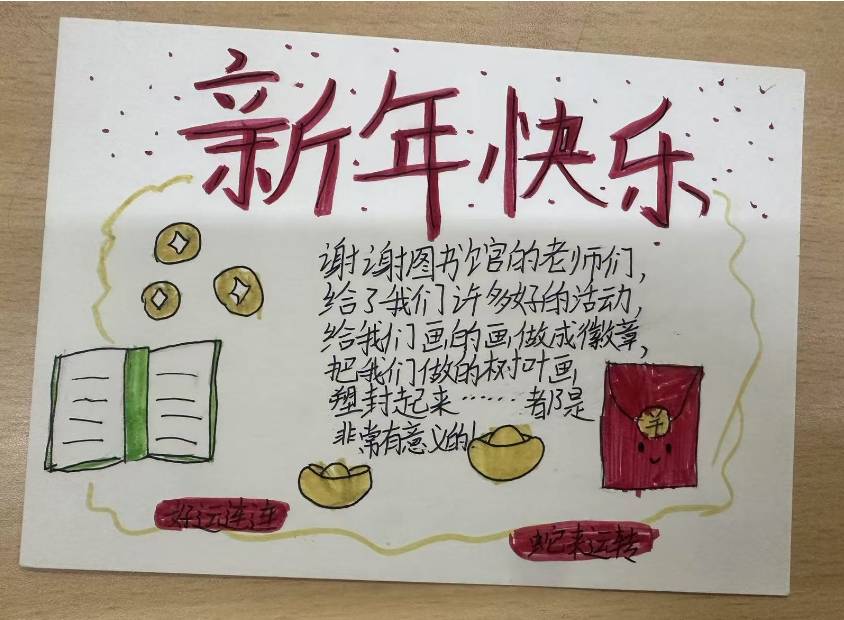 新年快乐
谢谢图书馆的老师们，
给了我们许多好的活动，
给我们画的画做成徽章，
把我们做的树叶画
塑封起来……都是
非常有意义的！
羊
好运连连
蛇来运转